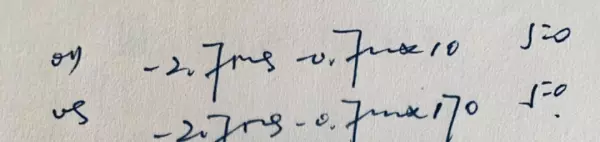 on -2.7ms -0.7mx10 S=0
us -2.7ms-0.7mx170 S=0.